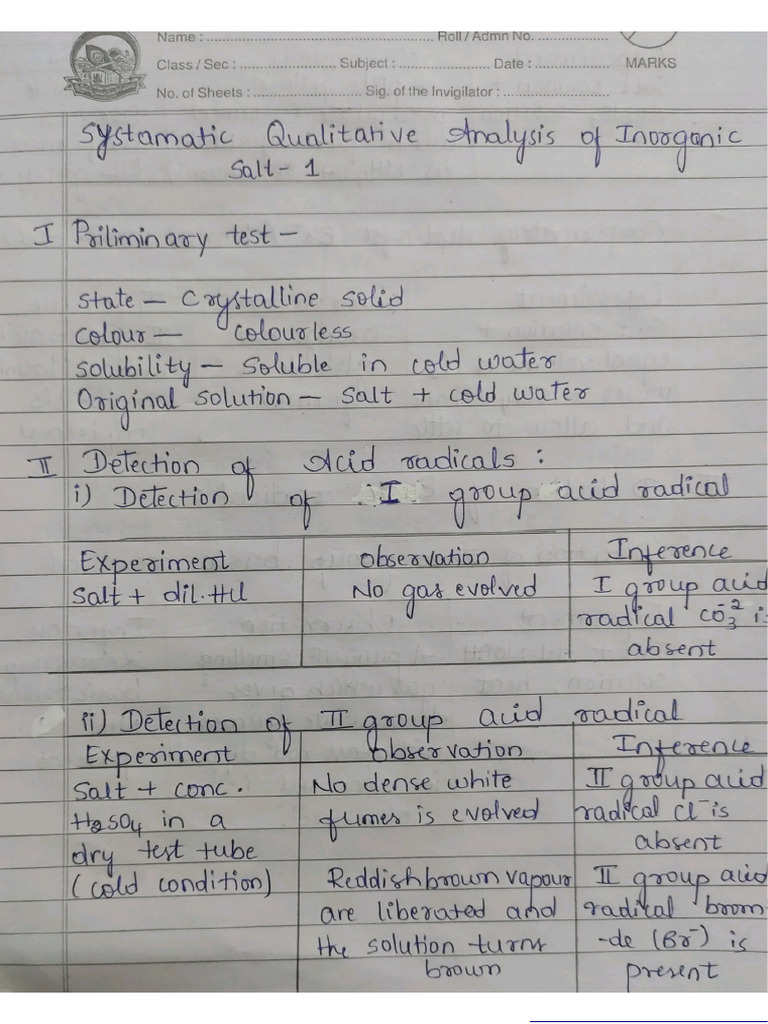 Name : Roll / Admn No.
Class / Sec : Subject : Date : MARKS
No. of Sheets : Sig. of the Invigilator :
Systamatic Qualitative Analysis of Inorganic
Salt - 1
I Priliminary test —
State — Crystalline solid
colour — colourless
solubility — Soluble in cold water
Original solution — Salt + cold water
II Detection of Acid radicals :
i) Detection of I group acid radical
Experiment Observation Inference
Salt + dil. HCl No gas evolved I group acid
radical CO₃⁻² is
absent
ii) Detection of II group acid radical
Experiment Observation Inference
Salt + conc. No dense white II group acid
H₂SO₄ in a fumes is evolved radical Cl⁻ is
dry test tube absent
(cold condition) Reddish brown vapour II group acid
are liberated and radical brom-
the solution turns -de (Br⁻) is
brown present